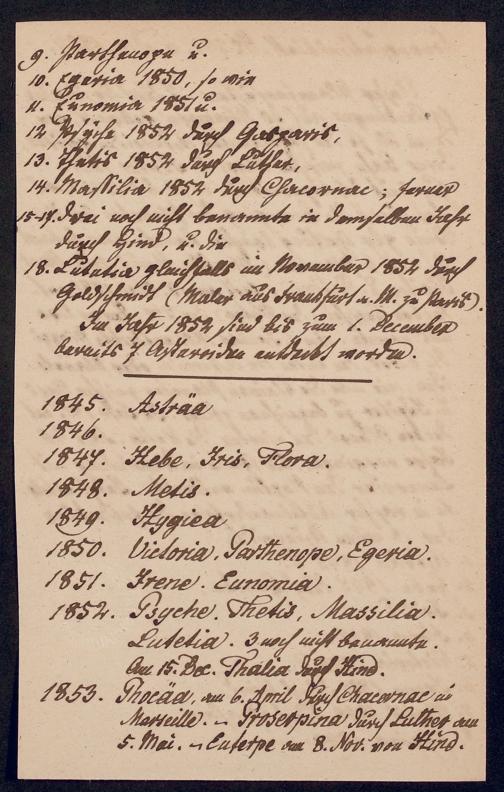 9. Parthenope u.
10. Egeria 1850, so wie
11. Eunomia 1851 u.
12. Psyche 1852 durch Gasparis,
13. Thetis 1852 durch Luther,
14. Massilia 1852 durch Chacornac; ferner
15-17. Drei noch nicht benannte in demselben Jahr
durch Hind, u. die
18. Lutetia gleichfalls im November 1852 durch
Goldschmidt (Maler aus Frankfurt a. M. zu Paris).
Im Jahr 1852 sind bis zum 1. December
bereits 7 Asteroiden entdeckt worden.
1845. Asträa
1846.
1847. Hebe, Iris, Flora.
1848. Metis.
1849. Hygiea
1850. Victoria, Parthenope, Egeria.
1851. Irene. Eunomia.
1852. Psyche. Thetis, Massilia.
Lutetia. 3 noch nicht benannte.
Am 15. Dec. Thalia durch Hind.
1853. Phocäa, am 6. April durch Chacornac in
Marseille. – Proserpina durch Luther am
5. Mai. – Euterpe am 8. Nov. von Hind.